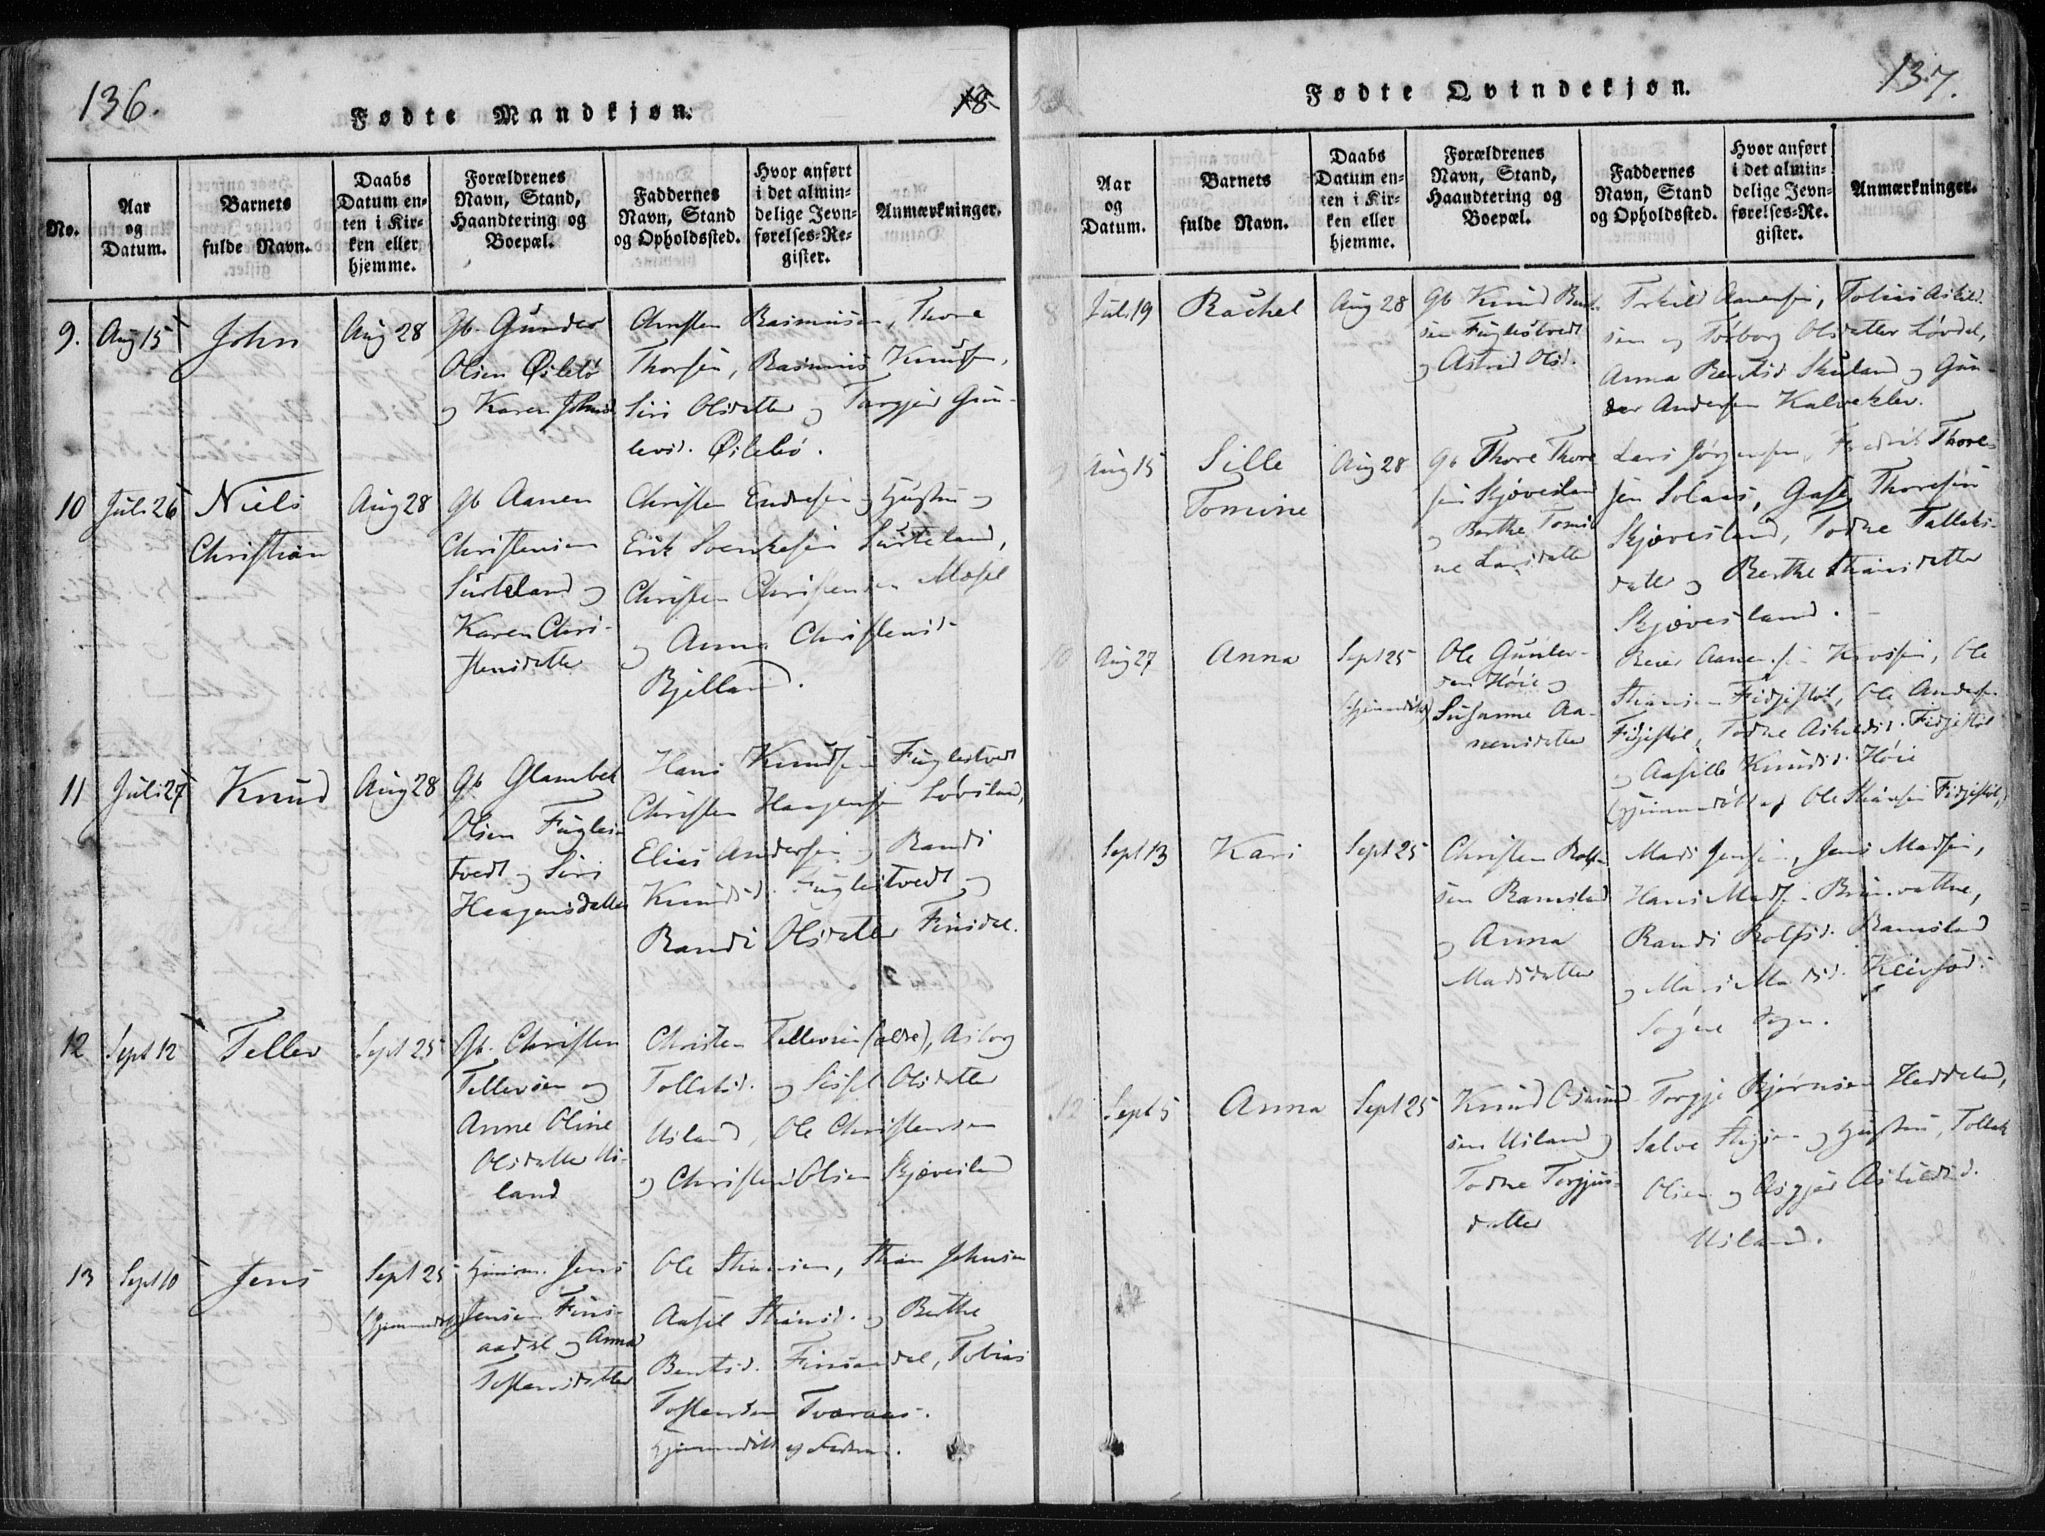 136.
18
Fødte Mandkjøn.
No.
Aar
og
Datum.
Barnets
fulde Navn.
Daabs
Datum en-
ten i Kir-
ken eller
hjemme.
Forældrenes
Navn, Stand,
Haandtering og
Boepæl.
Faddernes
Navn, Stand
og Opholdssted.
Hvor anført
i det almin-
delige Jevn-
førelses-Re-
gister.
Anmærkninger.
9.
Aug 15
John
Aug 28
Gb. Gunder
Olsen Øilebø
og Karen Johnsd
Christen Rasmusen, Thore
Thorsen, Rasmus Knudsen,
Siri Olsdatter og Torgjer Gun-
levsd. Øilebø.
10
Juli 26
Niels
Christian
Aug 28
Gb Aanen
Christensen
Surteland og
Karen Chri-
stensdatter
Christen Endresen og Hustru og
Erik Svenkesen Surteland,
Christen Christensen Mosel
og Anna Christensd
Bjelland.
11
Juli 27
Knud
Aug 28
Gb. Glambek
Olsen Fugles-
tvedt og Siri
Haagensdatter
Hans Knudsen Fuglestvedt
Christen Haagensen Løvsland,
Elias Andersen og Randi
Knudsd. Fuglestvedt og
Randi Olsdatter Finsdal.
12
Sept 12
Tellev
Sept 25
Gb. Christen
Tellevsen og
Anne Oline
Olsdatter Us-
land
Christen Tellevsen (ældre), Asborg
Tollaksd. og Sissel Olsdatter
Usland, Ole Christensen
og Christen Olsen Skjævesland
13
Sept 10
Jens
Sept 25
Jens
Jensen Fins-
aadal og Anna
Tostensdatter
Ole Stiansen, Stian Johnsen
Aasil Stiansd. og Berthe
Bentsd. Finsaadal, Tobias
Tostensen Tveraas.
Hjemmedøbt af Faderen.
137.
Fødte Qvindekjøn.
Aar
og
Datum.
Barnets
fulde Navn.
Daabs
Datum en-
ten i Kir-
ken eller
hjemme.
Forældrenes
Navn, Stand,
Haandtering og
Boepæl.
Faddernes
Navn, Stand
og Opholdssted.
Hvor anført
i det almin-
delige Jevn-
førelses-Re-
gister.
Anmærkninger.
8
Juli 19
Rachel
Aug 28
Gb Knud Bent-
sen Fuglestvedt
og Astrid Olsd.
Terkild Aanensen, Tobias Askild-
sen og Torborg Olsdatter Løvdal,
Anna Bentsd. Skuland og Gun-
der Andersen Kalveklev.
9
Aug 15
Sille
Tomine
Aug 28
Gb Thore Thore
sen Skjævesland
og Berthe Tomi
ne Larsdatter
Lars Jørgensen, Fredrik Thore-
sen Solaas, Thoresen
Skjævesland, Todne Tallaks-
datter og Berthe Stiansdatter
Skjævesland.
10
Aug 27
Anna
Sept 25
(hjemmedøbt)
Ole Gunder-
sen Høie og
Susanne Aa-
nensdatter
Reier Aanensen Krossen, Ole
Stiansen Fidjestøl, Ole Andersen
Fidjestøl, Todne Askildsd. Fidjestøl
og Aasille Knudsd. Høie
(hjemmedøbt af Ole Stiansen Fidjestøl)
11
Sept 13
Kari
Sept 25
Christen Rolf-
sen Ramsland
og Anna
Madsdatter
Mads Jensen, Jens Madsen,
Hans Mads. Brunvatne,
Randi Rolfsd. Ramsland
og Mari Madsd.
Søgne Sogn.
12
Sept 5
Anna
Sept 25
Knud Osmund
sen Usland og
Todne Torgjus-
datter
Torgje Bjørnsen Heddeland,
Salve Stigsen og Hustru, Tollak
Olsen og Asgjer Askildsd.
Usland.